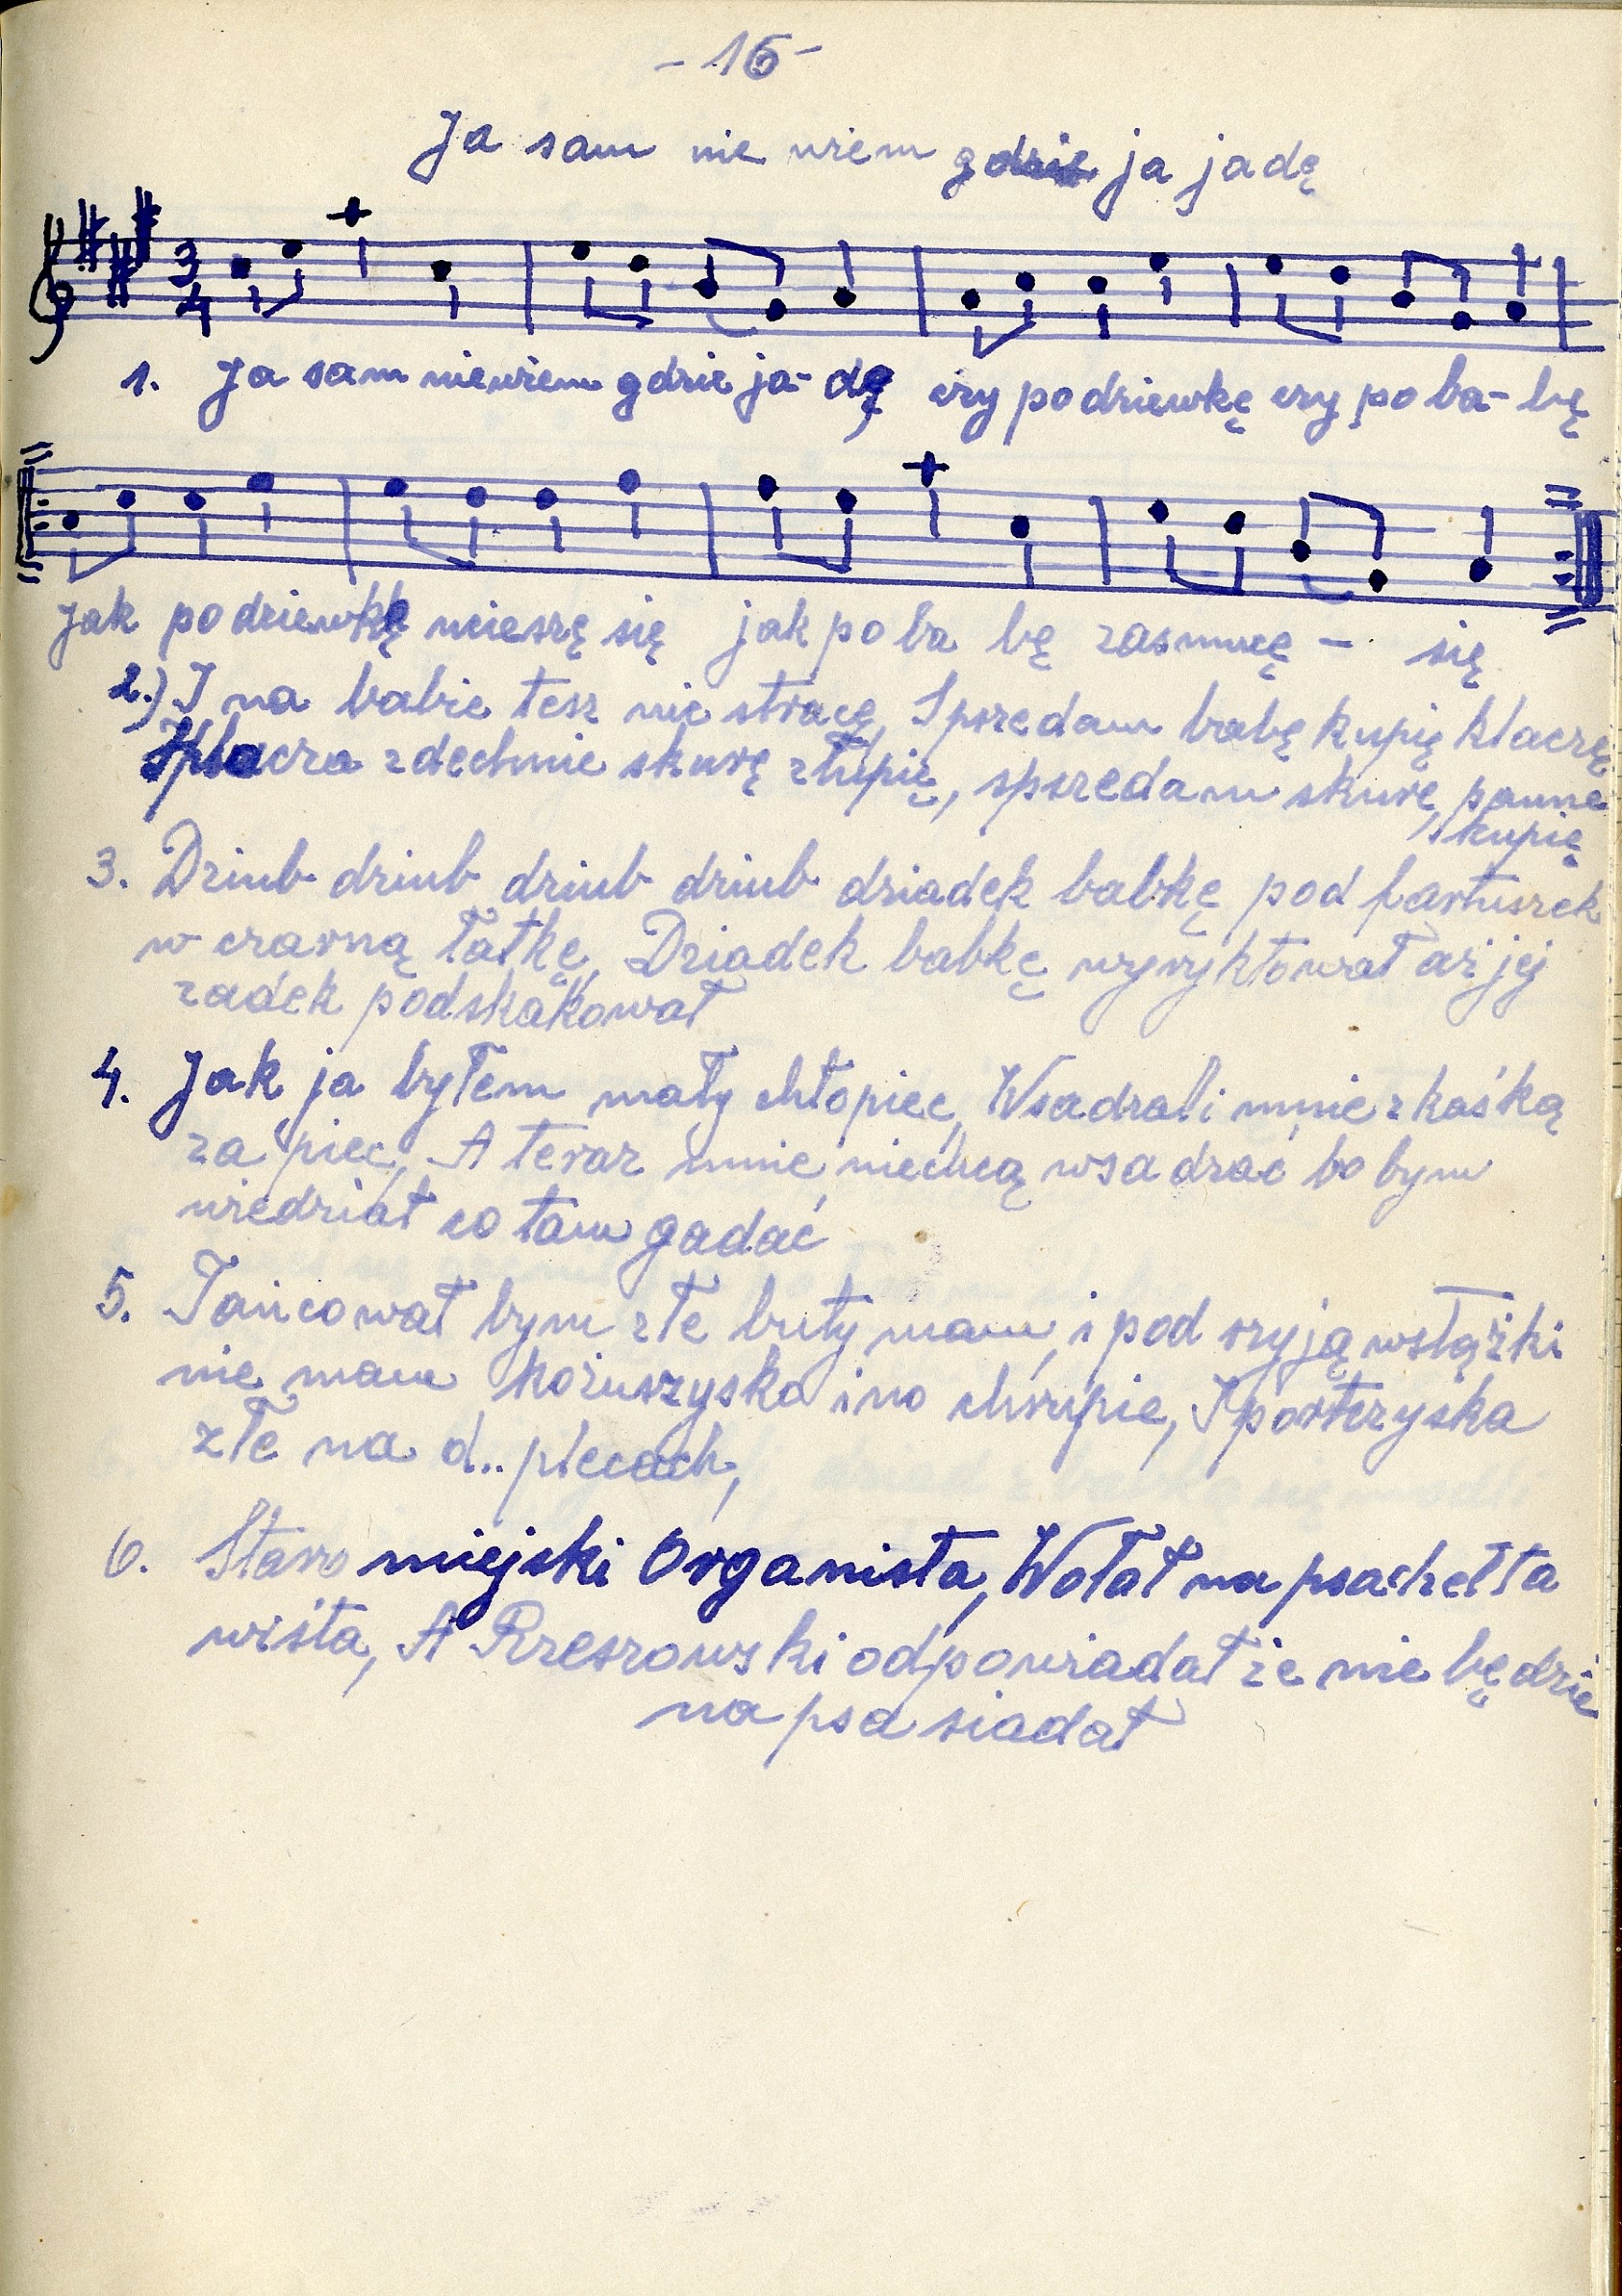 - 16 -
Ja sam nie wiem gdzie ja jadę
3
4
1. Ja sam niewiem gdzie ja- dę czy podziewkę czy po ba- bę
Jak podziewkę ucieszę się jak po ba bę zasmucę - się
2.) I na babie tesz nie stracę, Spszedam babę kupię klaczę
Klacza zdechnie skurę złupię, spszedam skurę, panne
kupię
3. Dziub dziub dziub dziub dziadek babkę pod fartuszek
w czarną łatkę, Dziadek babkę wyryktował aż jej
zadek podskakował
4. Jak ja byłem mały chłopiec, Wsadzali mnie z kaśką
za piec, A teraz mnie niechcą wsadzać bo bym
wiedział co tam gadać
5. Tańcował bym złe buty mam, i pod szyją wstążki
nie mam kożuszyska ino chrupie, I portczyska
złe na d.. plecach,
6. Staromiejski Organista, Wołał na psa hetta
wiśta, A Rzeszowski odpowiadał że nie będzie
na psa siadał